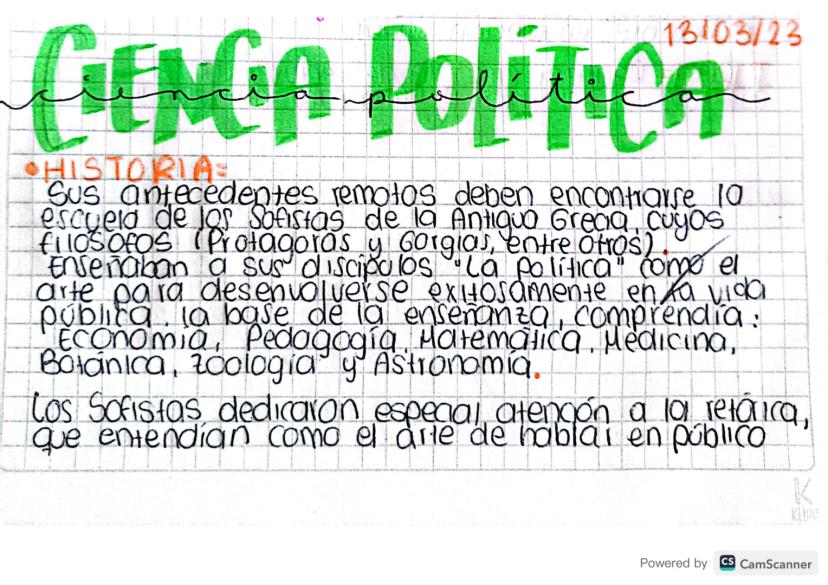 13/03/23
CIENCIA POLÍTICA
ciencia política
• HISTORIA:
Sus antecedentes remotos deben encontrarse la
escuela de los Sofistas de la Antigua Grecia, cuyos
filósofos (Protagoras y Gorgias, entre otros).
Enseñaban a sus discípulos "La política" como el
arte para desenvolverse exitosamente en la vida
pública. la base de la enseñanza, comprendía:
Economía, Pedagogía, Matemática, Medicina,
Botánica, Zoología y Astronomía.
Los Sofistas dedicaron especial atención a la retórica,
que entendían como el arte de hablar en público
K
Powered by CS CamScanner